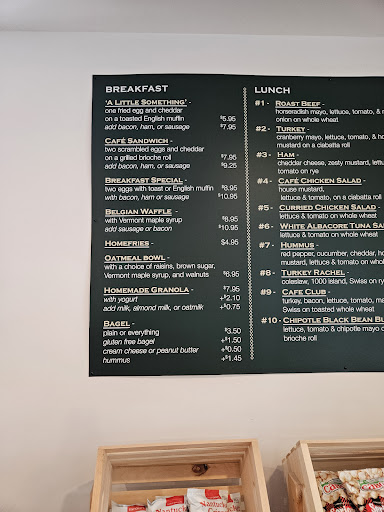 BREAKFAST
'A Little Something' -
one fried egg and cheddar
on a toasted English muffin $5.95
add bacon, ham, or sausage $7.95
Café Sandwich -
two scrambled eggs and cheddar
on a grilled brioche roll $7.95
add bacon, ham or sausage $9.25
Breakfast Special -
two eggs with toast or English muffin $8.95
with bacon, ham or sausage $10.95
Belgian Waffle -
with Vermont maple syrup $8.95
add sausage or bacon $10.95
Homefries - $4.95
Oatmeal bowl -
with a choice of raisins, brown sugar,
Vermont maple syrup, and walnuts $6.95
Homemade Granola - $7.95
with yogurt +$2.10
add milk, almond milk, or oatmilk +$0.75
Bagel -
plain or everything $3.50
gluten free bagel +$1.50
cream cheese or peanut butter +$0.50
hummus +$1.45
LUNCH
#1 - Roast Beef -
horseradish mayo, lettuce, tomato, &
onion on whole wheat
#2 - Turkey -
cranberry mayo, lettuce, tomato, &
mustard on a ciabatta roll
#3 - Ham -
cheddar cheese, zesty mustard,
tomato on rye
#4 - Café Chicken Salad -
house mustard,
lettuce & tomato, on a ciabatta roll
#5 - Curried Chicken Salad -
lettuce & tomato on whole wheat
#6 - White Albacore Tuna
lettuce & tomato on whole wheat
#7 - Hummus -
red pepper, cucumber, cheddar,
mustard, lettuce & tomato on whole
#8 - Turkey Rachel -
coleslaw, 1000 island, Swiss on
#9 - Cafe Club -
turkey, bacon, lettuce, tomato,
Swiss on toasted whole wheat
#10 - Chipotle Black Bean
lettuce, tomato & chipotle mayo
brioche roll